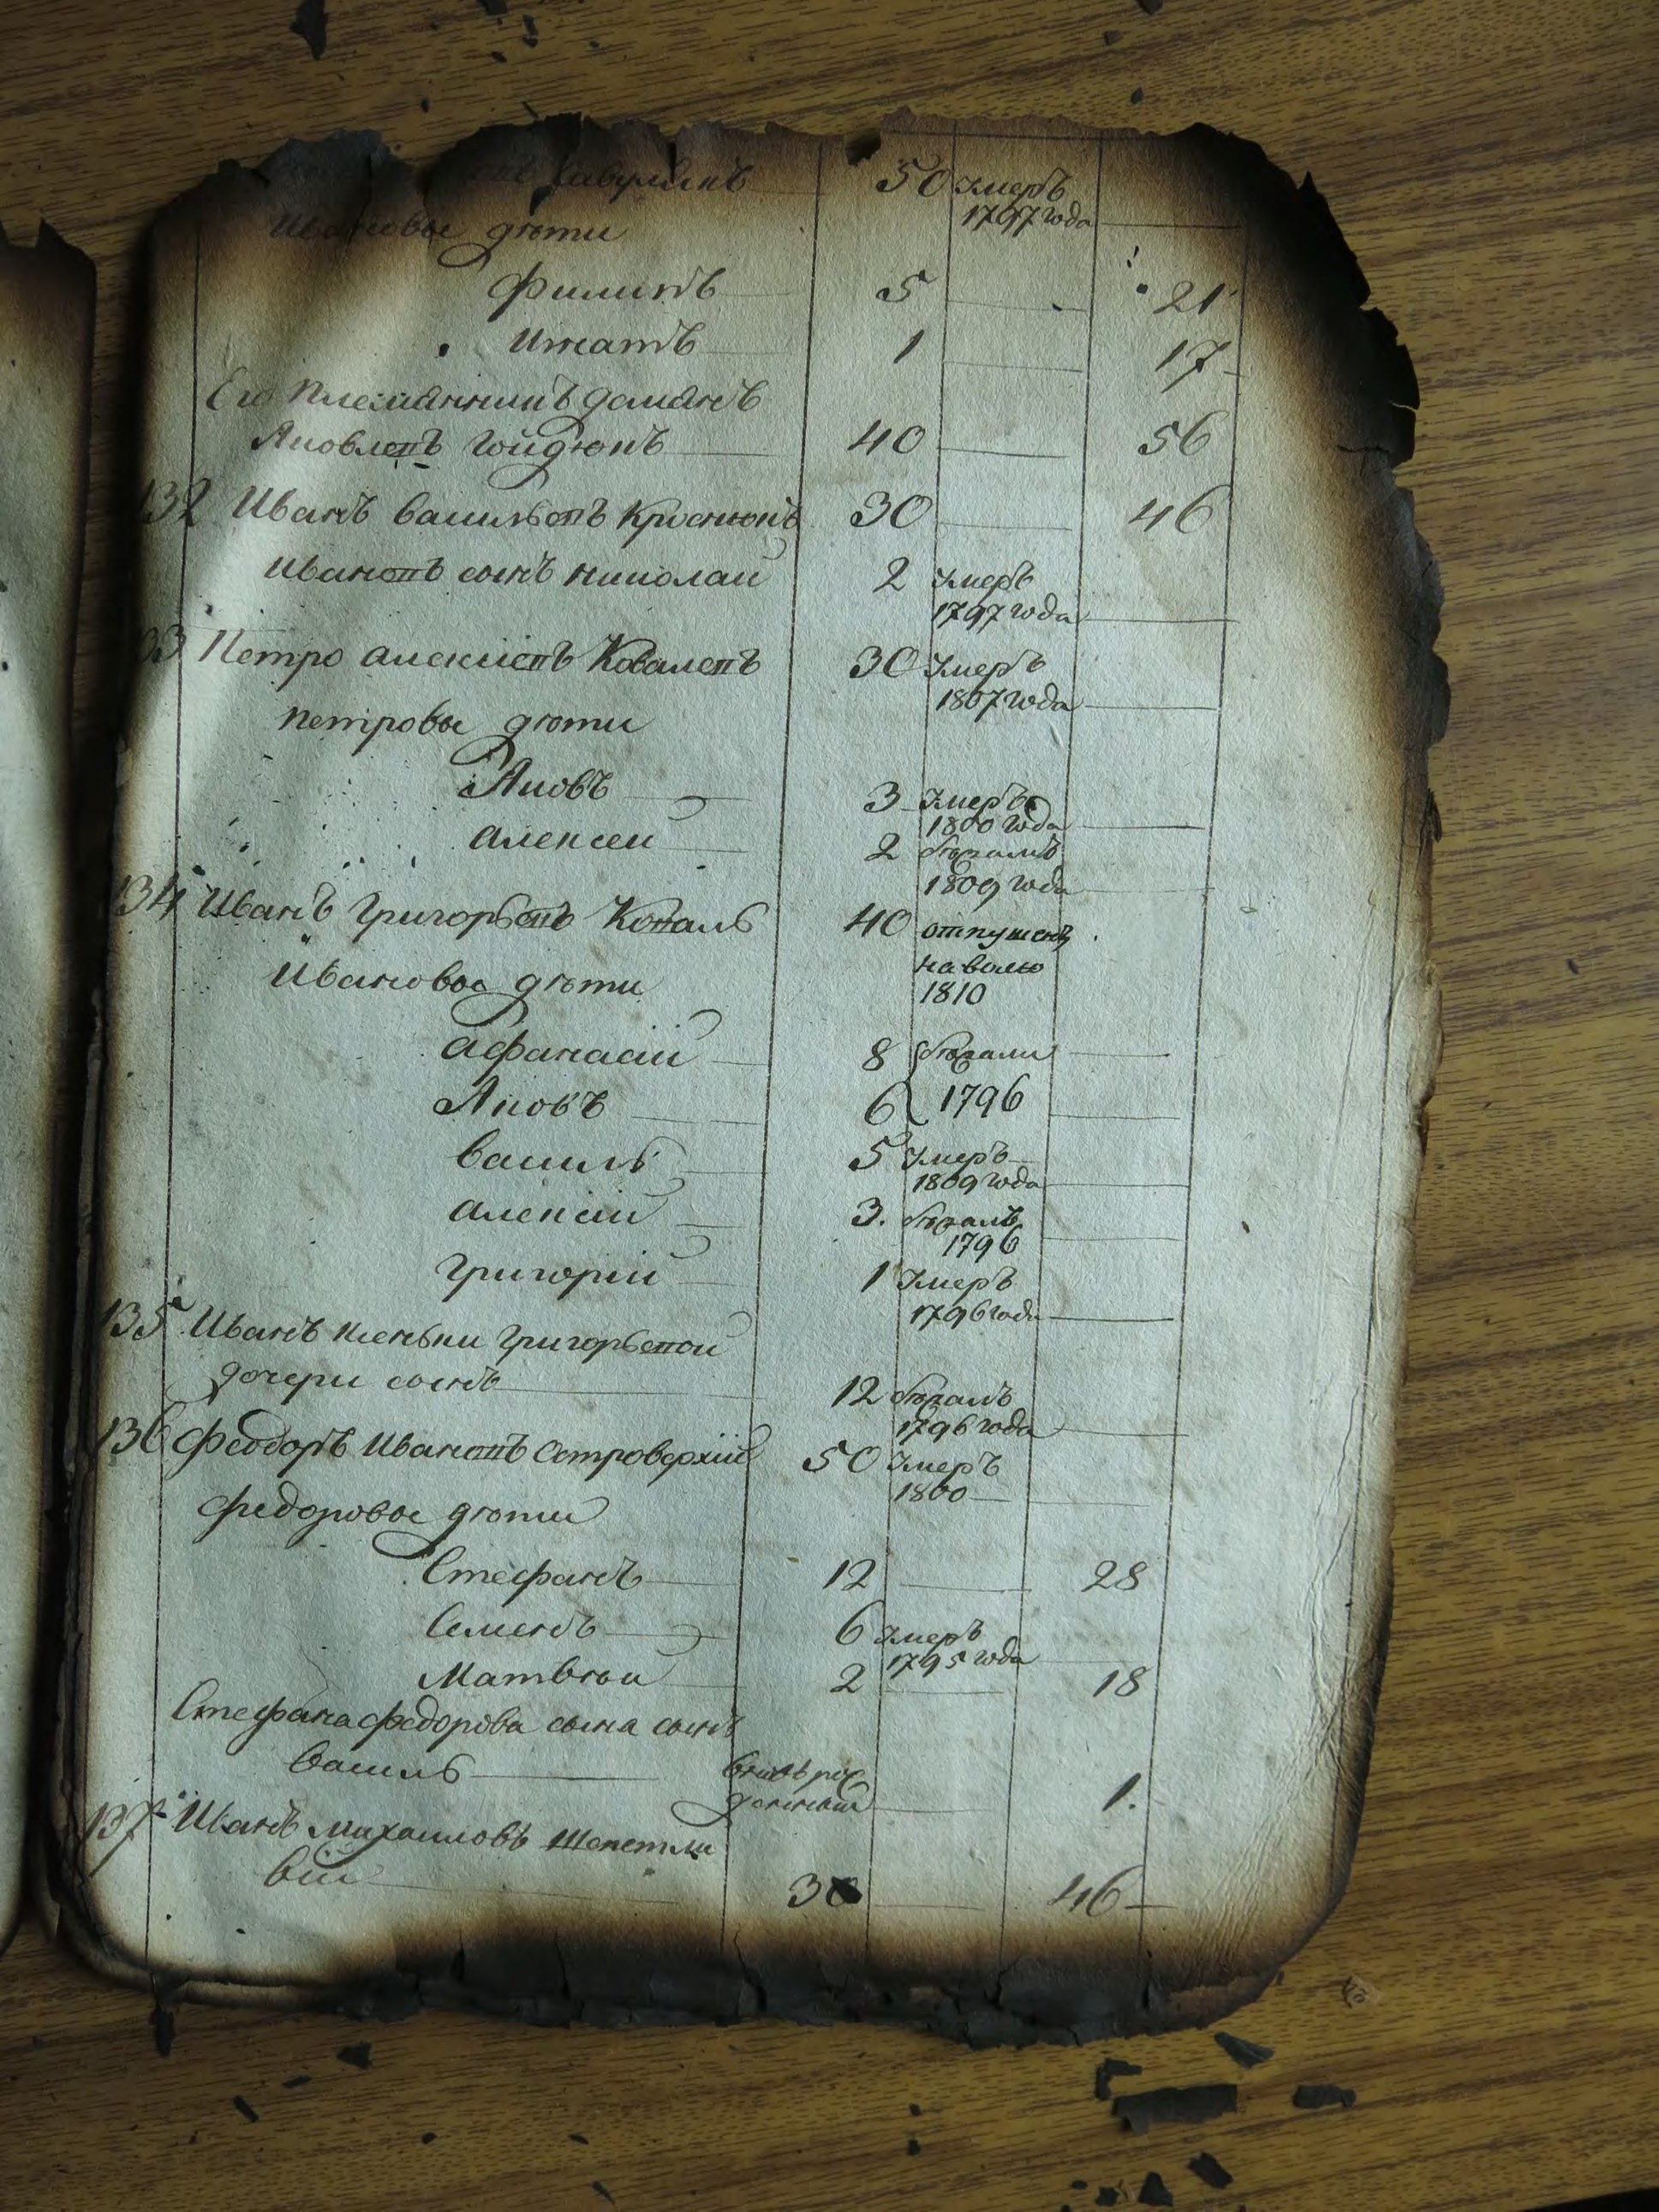 50 умеръ
1797 года
Ивановы дѣти
Филипъ 5 21
Игнатъ 1 17
Его племянникъ Домянъ
Яковлевъ Гойдюкъ 40 56
132 Иванъ Васильевъ 30 46
Ивановъ сынъ Николай 2 умеръ
1797 года
33 Петро Алексіевъ Ковалевъ 30 умеръ
1807 года
Петровы дѣти
Яковъ 3 умеръ
1800 года
Алексей 2 бѣжалъ
1809 года
134 Иванъ Григорьевъ Коваль 40 отпущенъ
на волю
1810
Ивановы дѣти
Афанасій 8 бѣжали
Яковъ 6 1796
Василь 5 умеръ
1809 года
Алексій 3. бѣжалъ
1796
Григорій 1 умеръ
1796 года
135 Иванъ Григорьевой
дочери сынъ 12 бѣжалъ
1796 года
136 Феодоръ Ивановъ Островерхій 50 умеръ
1800
Федоровы дѣти
Стефанъ 12 28
Семенъ 6 умеръ
1795 года
Матвѣй 2 18
Стефана Федорова сына сынъ
Василь 1.
137 Иванъ Михайловъ Шепетли
вій 30 46